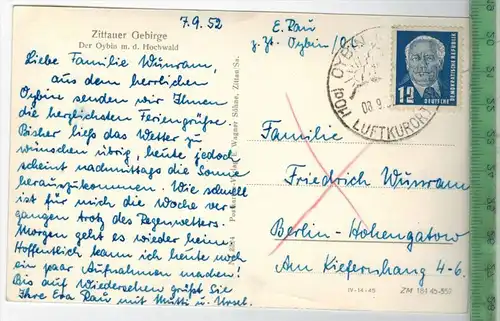 Zittauer Gebirge
Der Oybin m. d. Hochwald
7.9.52
Liebe Familie Wunram,
aus dem herrlichen
Oybin senden wir Ihnen
die herzlichsten Feriengrüße.
Bisher ließ das Wetter zu
wünschen übrig, heute jedoch
scheint nachmittags die Sonne
herauszukommen. Wie schnell
ist für mich die Woche ver-
gangen trotz des Regenwetters.
Morgen geht es wieder heim.
Hoffentlich kann ich heute noch
ein paar Aufnahmen machen!
Bis auf Wiedersehen grüßt Sie
Ihre Eva Rau mit Mutti u. Ursel.
Wagner Söhne, Zittau/Sa.
E. Rau
z. Zt. Oybin
OYBIN
08.9
LUFTKURORT
12
DEUTSCHE
DEMOKRATISCHE REPUBLIK
Familie
Friedrich Wunram
Berlin-Hohengatow
Am Kiefernhang 4-6.
IV-14-45
ZM